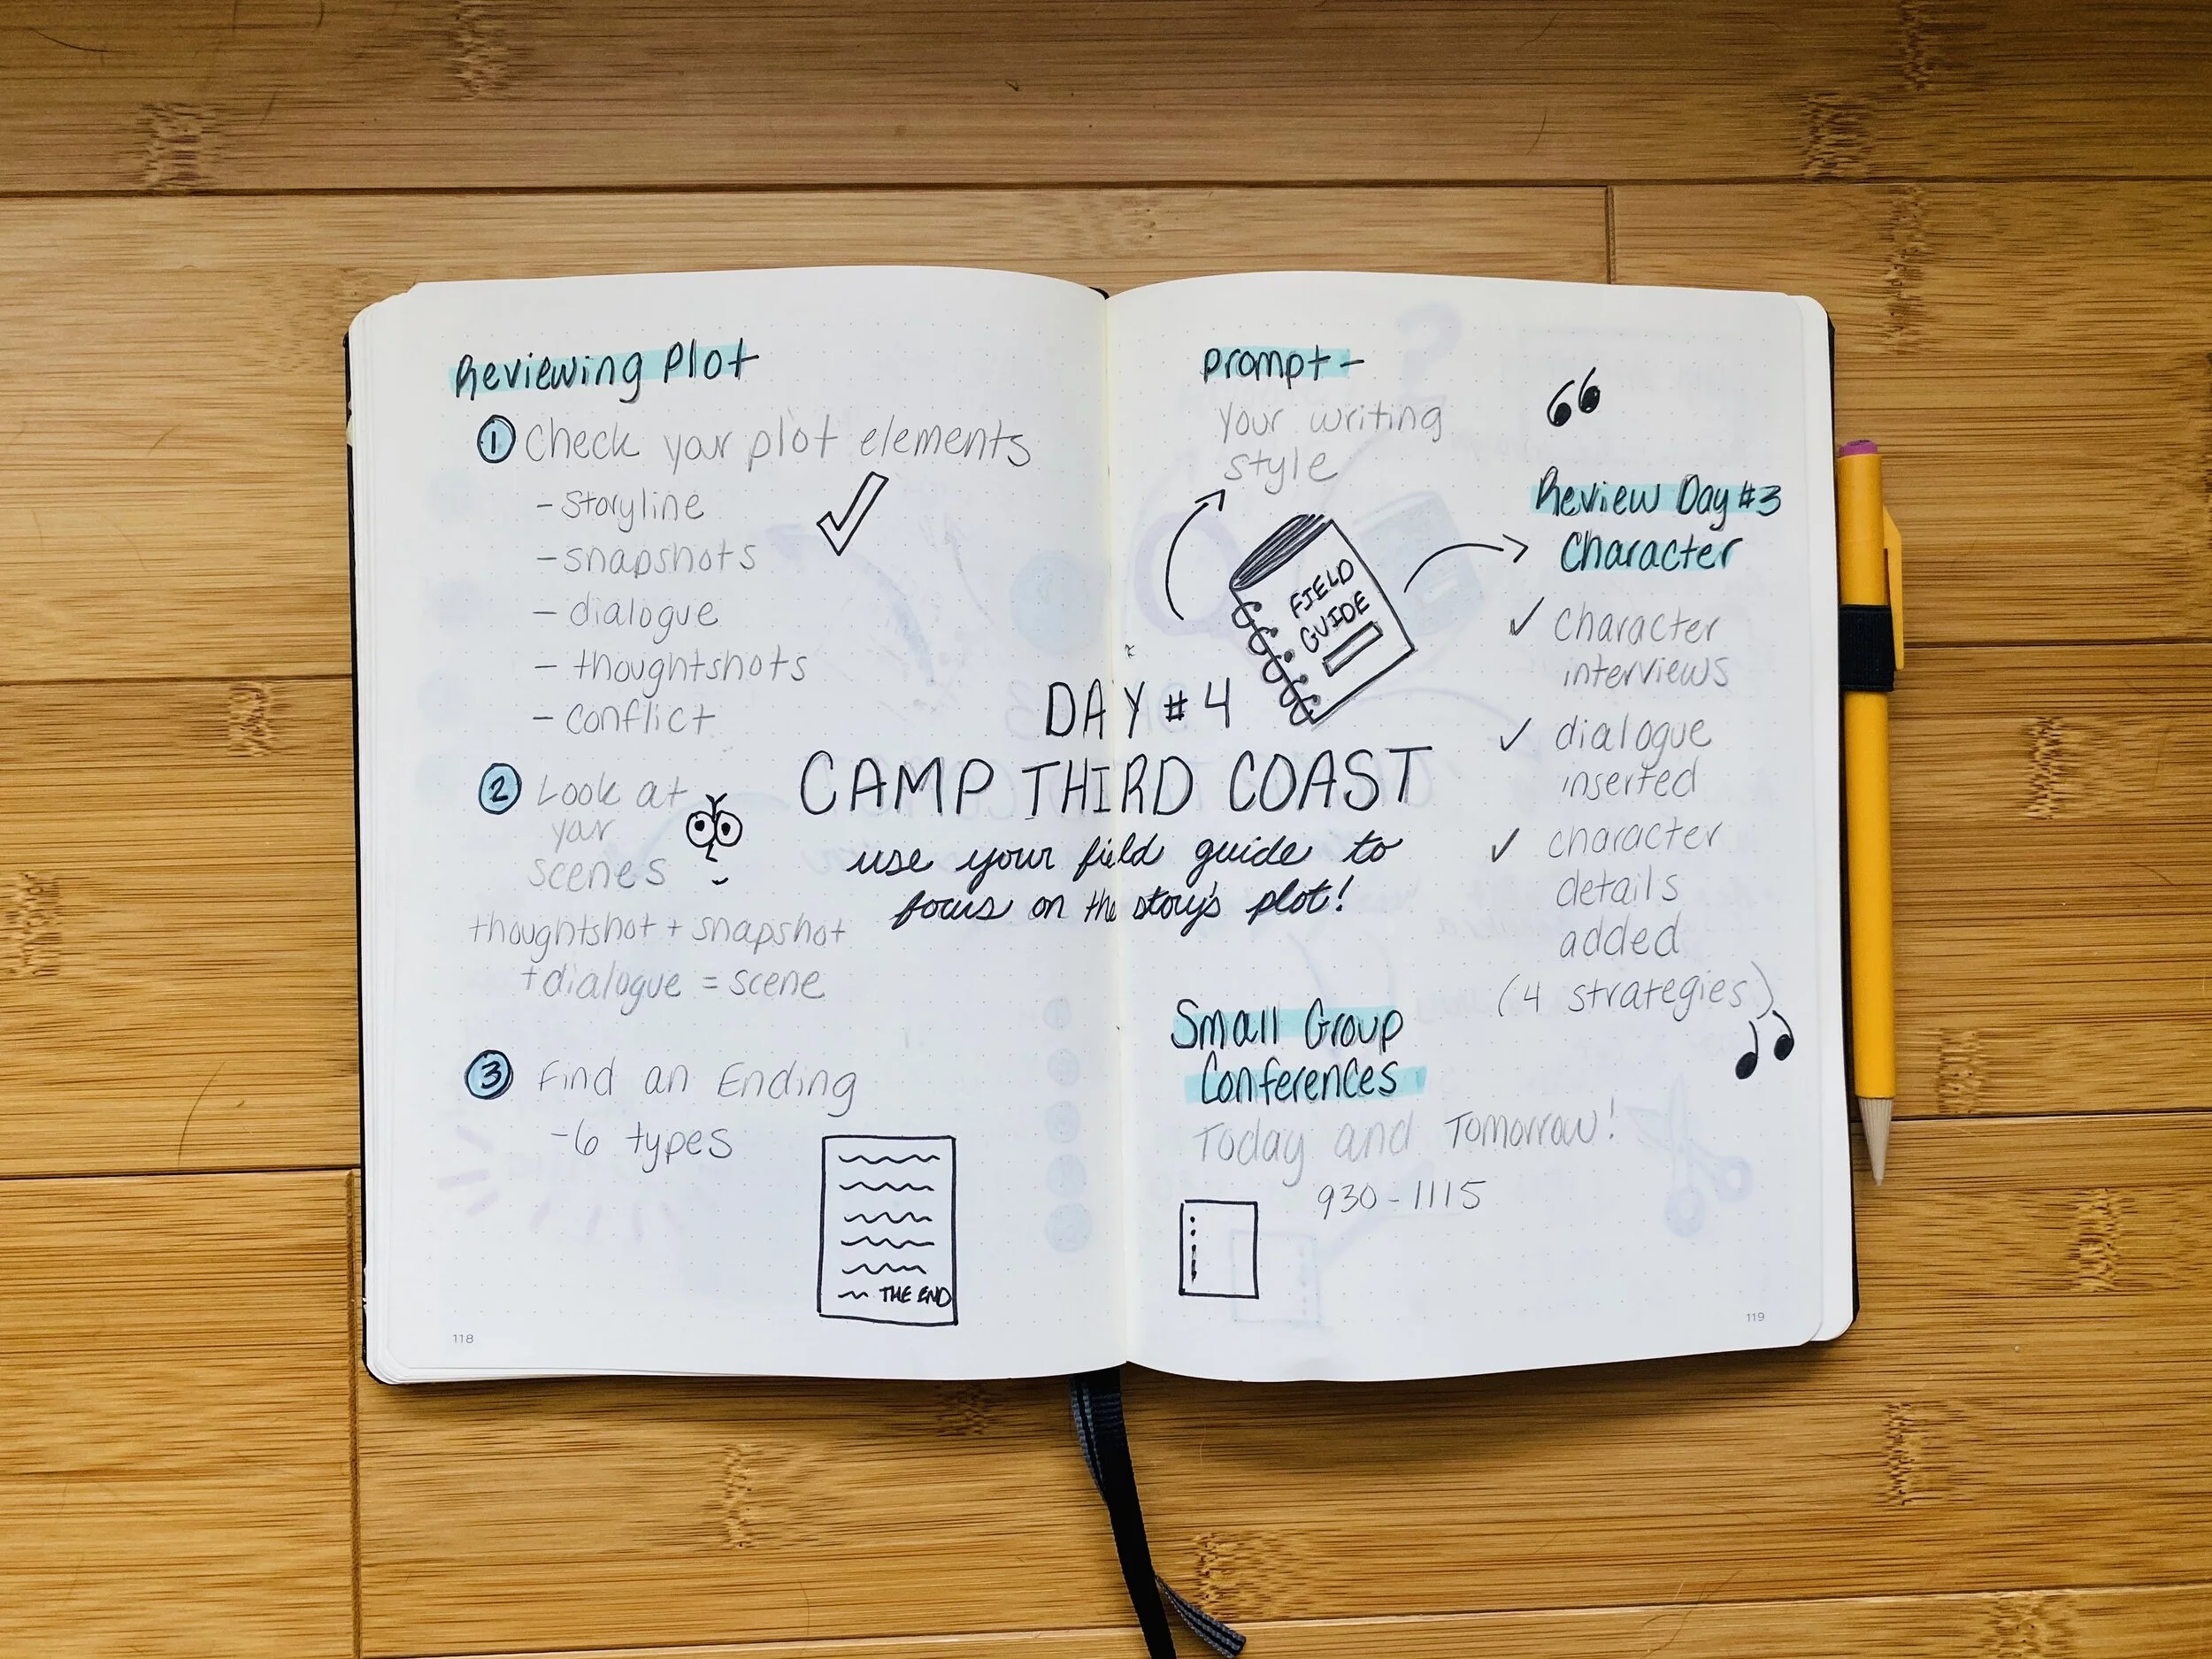 Reviewing Plot
1 Check your plot elements
- storyline
- snapshots
- dialogue
- thoughtshots
- conflict
2 Look at
your
scenes
thoughtshot + snapshot
+ dialogue = scene
3 Find an Ending
- 6 types
THE END
118
DAY #4
CAMP THIRD COAST
use your field guide to
focus on the story's plot!
Prompt -
Your writing
style
FIELD
GUIDE
Review Day #3
Character
✓ Character
interviews
✓ dialogue
inserted
✓ character
details
added
(4 strategies)
Small Group
Conferences
Today and Tomorrow!
930 - 1115
119